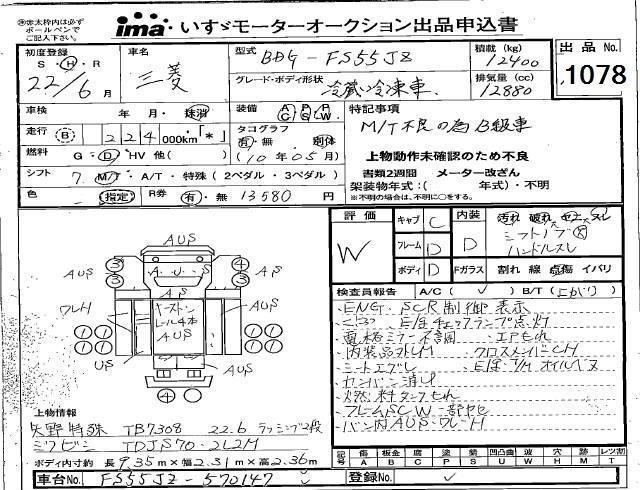 ※赤太枠内は必ず
ボールペンで
ご記入下さい。
ima いすゞモーターオークション出品申込書
初度登録
S・H・R
22/6月
車名
三菱
型式
BDG-FS55JZ
グレード・ボディ形状
冷蔵冷凍車
積載(kg)
12400
排気量(cc)
12880
出品No.
1078
車検
年・月・抹消
装備
A/C P/S P/W
特記事項
M/T不良の為B級車
走行
B 224000km「*」
タコグラフ
有・無 別体
(10年05月)
燃料
G・D・HV 他( )
上物動作未確認のため不良
シフト
7 M/T・A/T・特殊(2ペダル・3ペダル)
書類2週間 メーター改ざん
架装物年式:( 年式)・不明
※不明の場合は、不明に○をする。
色
(指定)
R券
有・無 13580円
評価
W
キャブ C
フレーム D
ボディ D
内装 D
Fガラス
割れ 線 点傷 イバリ
シフトノブ
ハンドルスレ
検査員報告 A/C( ✓ ) B/T(上がり)
・ENG. SCR制御 表示
・内装品外しM クロスメンバーCH
・シートエグレ
・カンバン消し
・燃料タンクもれ
・フレームSCW一部サビ
・バン内AUS・ワレH
AUS
③ ③ ④ ③
AUS
A U S
AS
AS
AUS
ワレH
ラーストン
レール4本
AUS
AUS
① ① ① ①
① ① ① ①
US
AUS
④
上物情報
矢野特殊 TB7308 22.6 ラッシング2段
ミツビシ TDJS70-2L2M
ボディ内寸約 長9.35m×幅2.31m×高2.36m
車台No. FS55JZ-570147
登録No.
記号 傷A 板金B 腐C 塗P 錆S 凹凸曲U 波W 穴H 跡M レツ割T